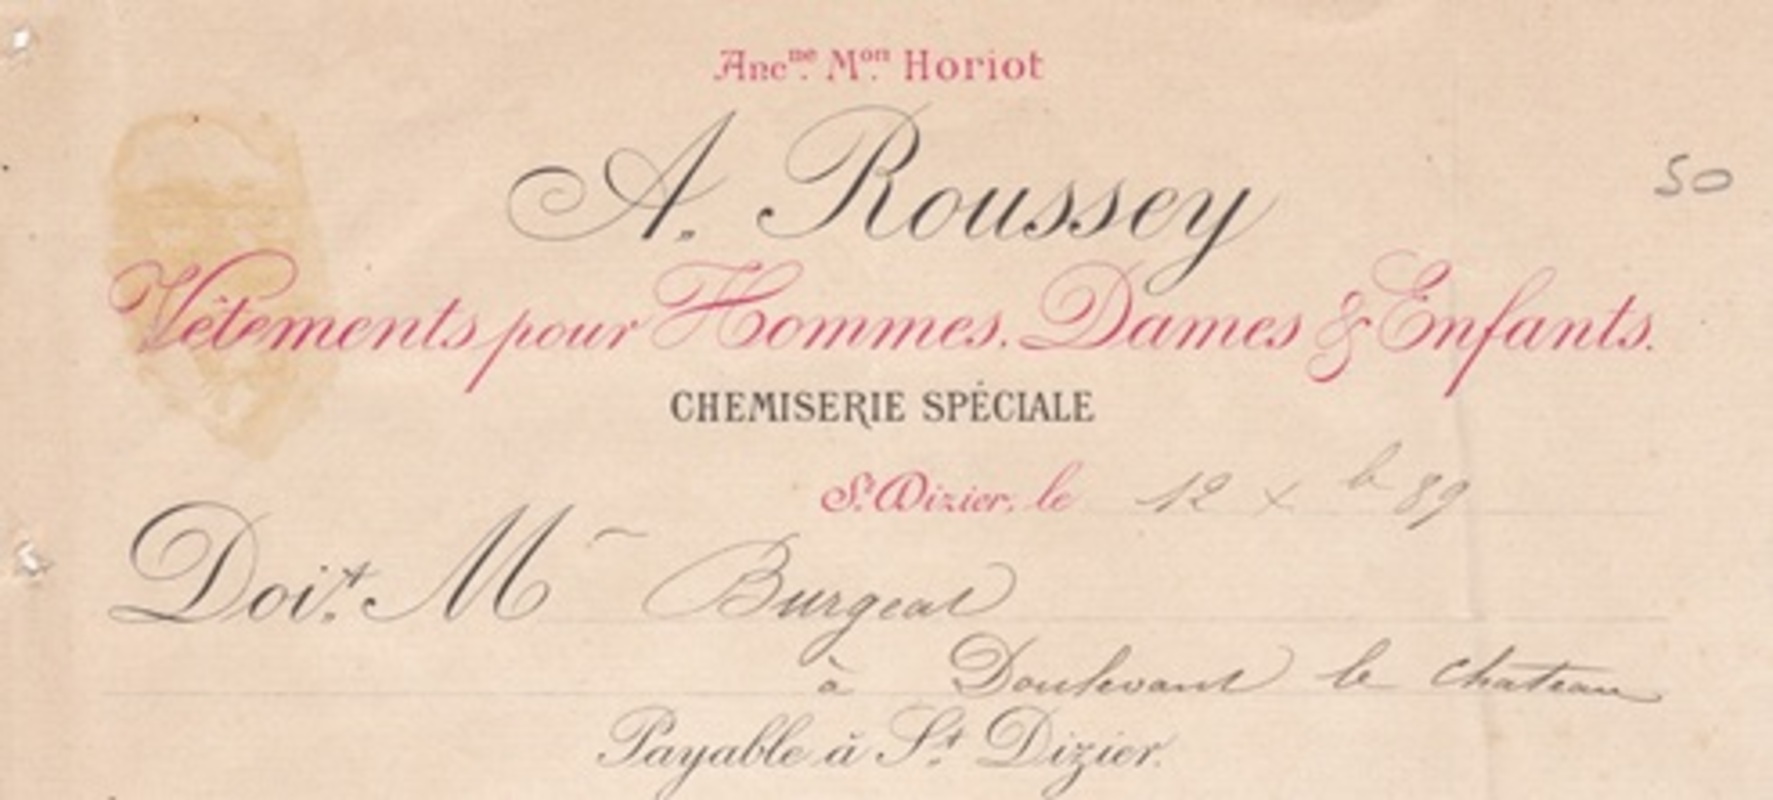 Anc^ne. M^on. Horiot
A. Roussey
50
Vêtements pour Hommes. Dames & Enfants.
CHEMISERIE SPÉCIALE
S^t. Dizier, le 12 X b 89
Doit. M Burgeat
à Doulevant le chateau
Payable à S^t. Dizier.